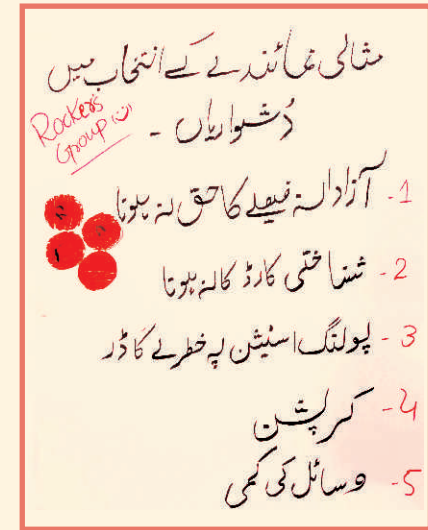 مثالی نمائندے کے انتخاب میں
دُشواریاں ۔
Rockers
Group
1- آزادانہ فیصلے کا حق نہ ہونا
2- شناختی کارڈ کا نہ ہونا
3- پولنگ اسٹیشن پہ خطرے کا ڈر
4- کرپشن
5- وسائل کی کمی